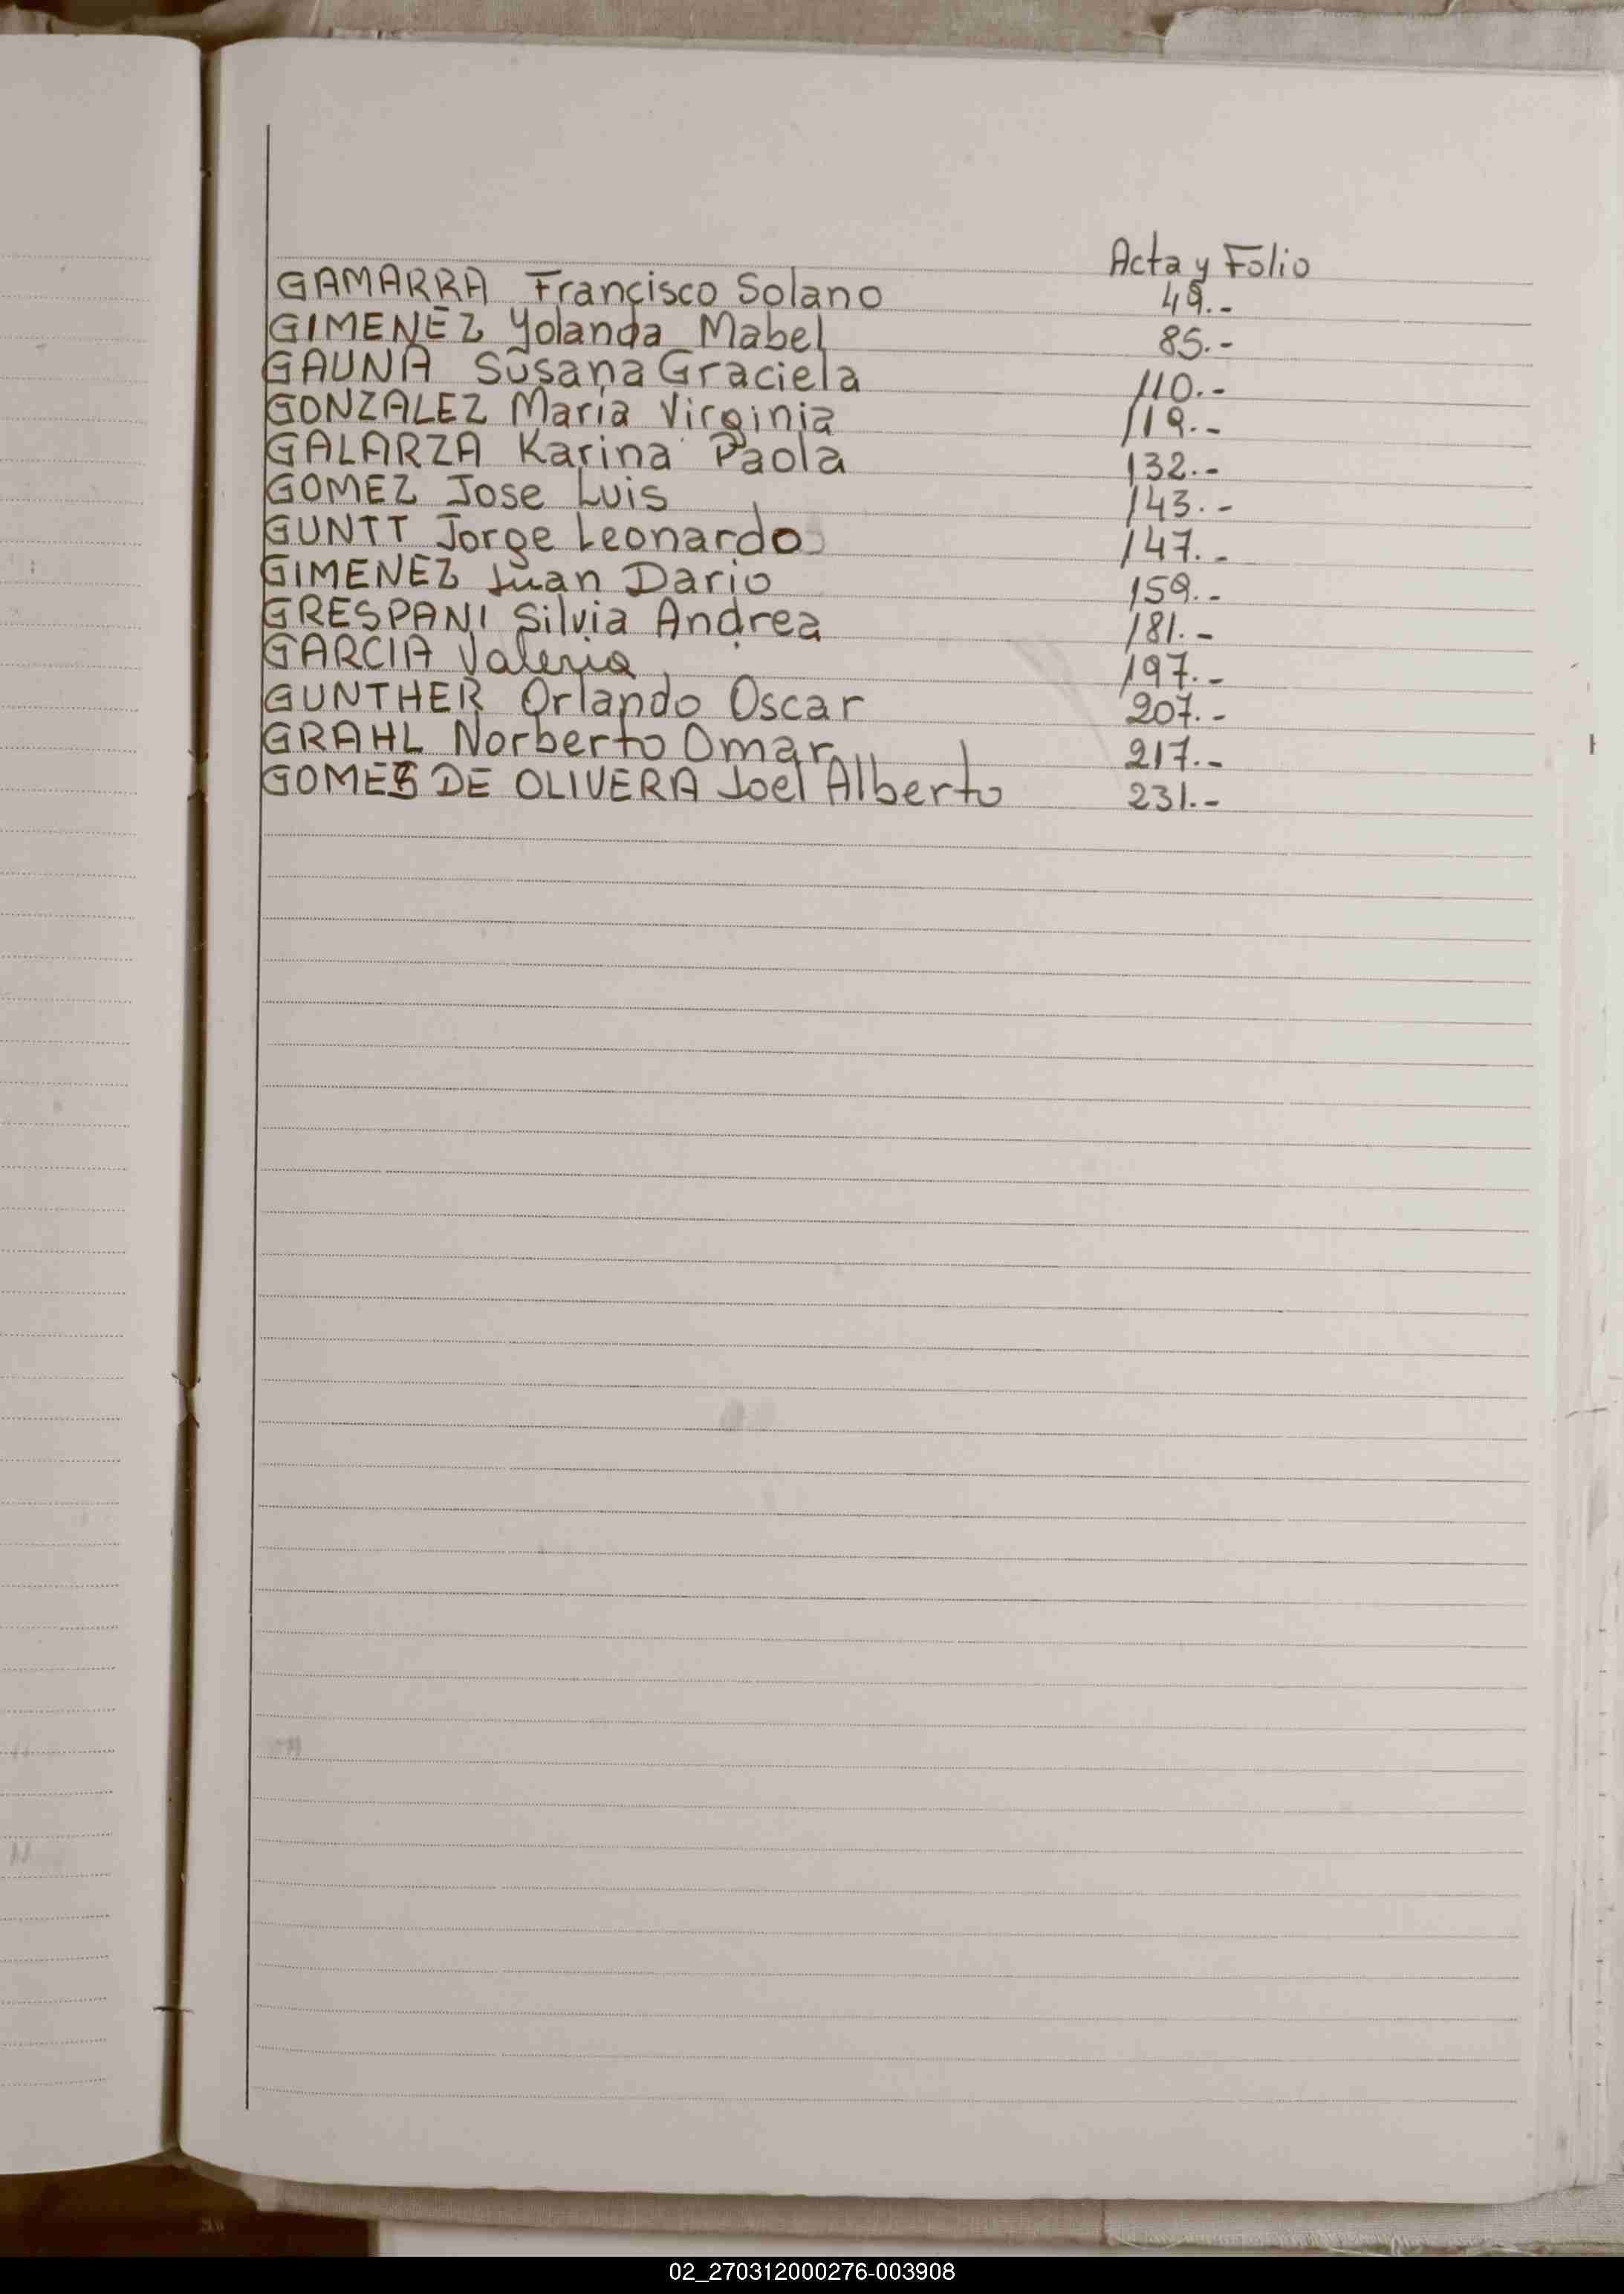 Acta y Folio
GAMARRA Francisco Solano 49.-
GIMENEZ Yolanda Mabel 85.-
GAUNA Susana Graciela 110.-
GONZALEZ María Virginia 119.-
GALARZA Karina Paola 132.-
GOMEZ Jose Luis 143.-
GUNTT Jorge Leonardo 147.-
GIMENEZ Juan Dario 159.-
GRESPANI Silvia Andrea 181.-
GARCIA Valeria 197.-
GUNTHER Orlando Oscar 207.-
GRAHL Norberto Omar 217.-
GOMES DE OLIVERA Joel Alberto 231.-
02_270312000276-003908